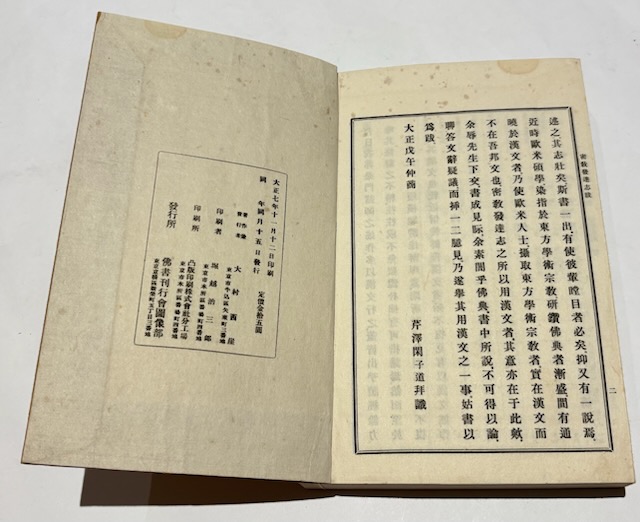 密教發達志跋
二
述之其志壯矣斯書一出有使彼輩瞠目者必矣抑又有一說焉
近時歐米碩學染指於東方學術宗教研鑽佛典者漸盛間有通
曉於漢文者乃使歐米人士攝取東方學術宗教者實在漢文而
不在吾邦文也密教發達志之所以用漢文者其意亦在于此歟
余辱先生下交書成見眎余素闇乎佛典書中所說不可得以論
聊答文辭疑議而挿一二臆見乃遂擧其用漢文之一事姑書以
爲跋
大正戊午仲商
芹澤閑子道拜識
大正七年十一月十二日印刷
同年同月十五日發行
定價金拾五圓
著作兼發行者
東京市牛込區矢來町三番地
大村西崖
印刷者
東京市本所區番場町四番地
堀越治三郎
印刷所
東京市本所區番場町四番地
凸版印刷株式會社分工場
發行所
佛書刊行會圖像部